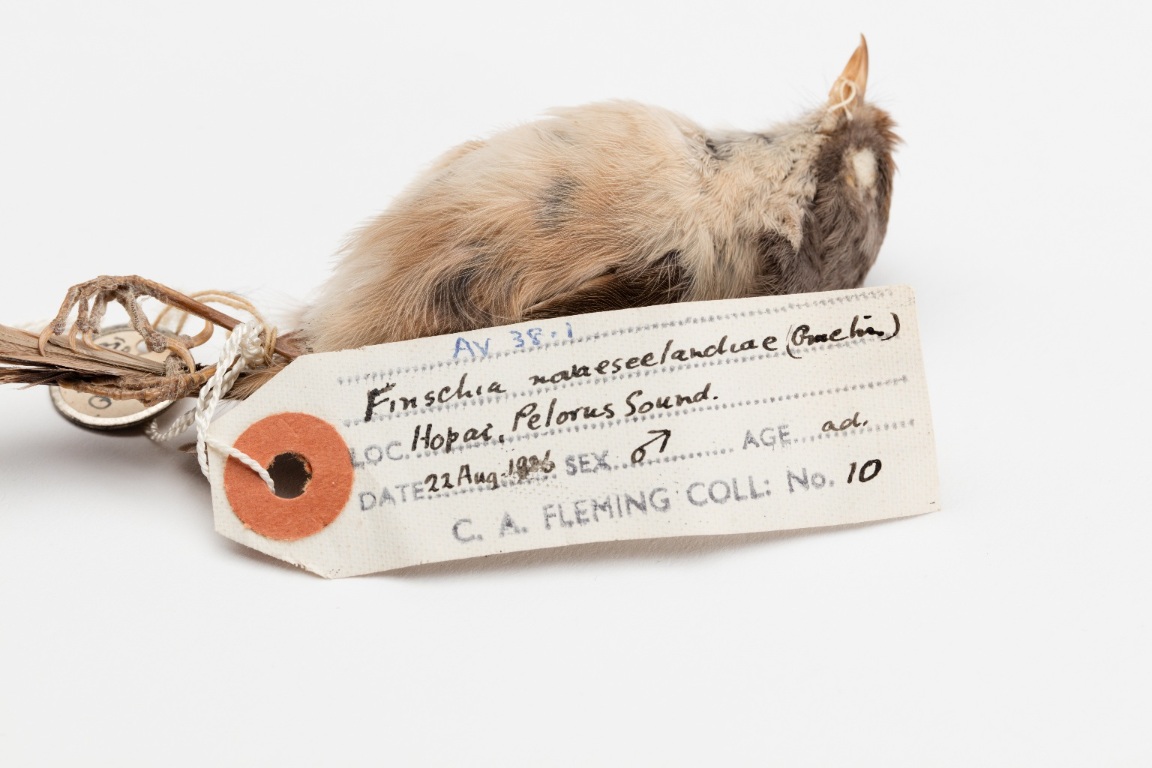 AV 38.1
Finschia novaeseelandiae (Gmelin)
LOC. Hopai, Pelorus Sound.
DATE 22 Aug. SEX ♂ AGE ad.
C. A. FLEMING COLL: No. 10